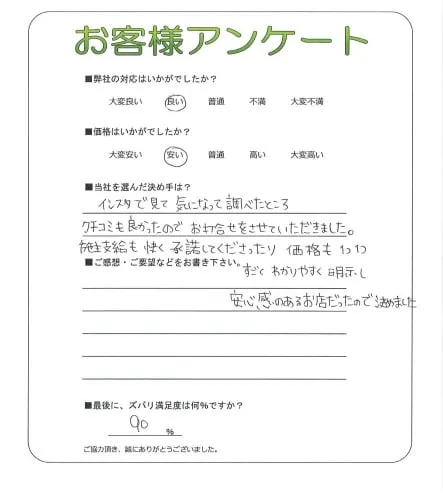 お客様アンケート
■弊社の対応はいかがでしたか?
大変良い 良い 普通 不満 大変不満
■価格はいかがでしたか?
大変安い 安い 普通 高い 大変高い
■当社を選んだ決め手は?
インスタで見て 気になって調べたところ
クチコミも良かったので お問合せをさせていただきました。
施主支給も 快く 承諾してくださったり 価格も 1つ1つ
■ご感想・ご要望などをお書き下さい。
すごく わかりやすく 明示し
安心感のあるお店だったので決めました
■最後に、ズバリ満足度は何%ですか?
90 %
ご協力頂き、誠にありがとうございました。